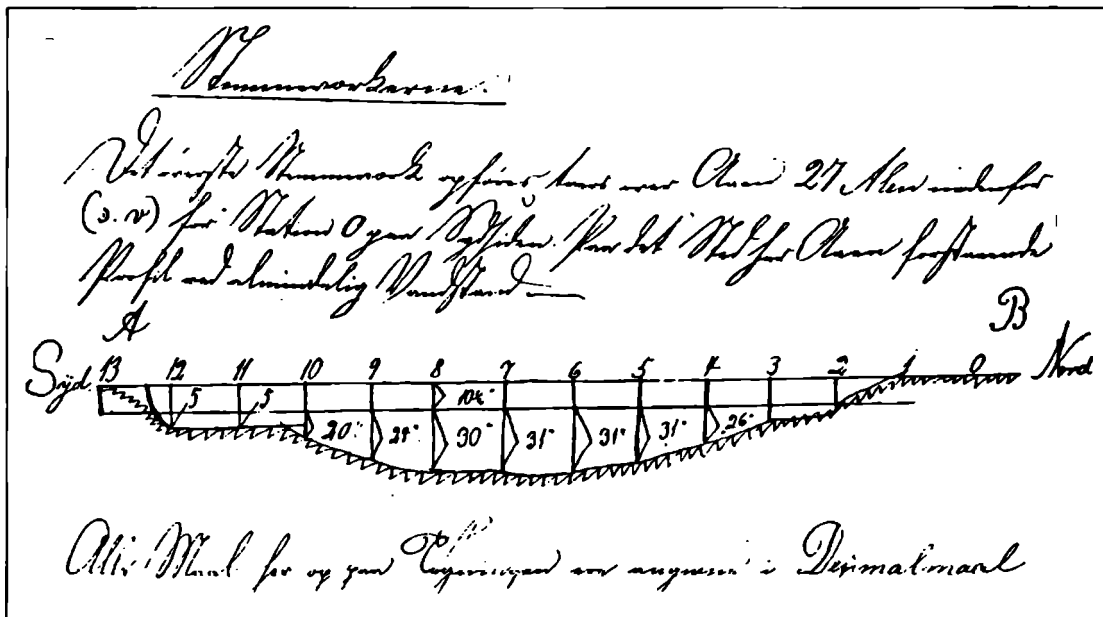 Stemmværkerne.
Det øverste Stemmværk opføres tværs over Aaen 27 Alen nedenfor
(o. v) for Station 0 paa Sydsiden. Paa det Sted har Aaen forstaaende
Profil ved almindelig Vandstand
A B
Syd. 13 12 11 10 9 8 7 6 5 4 3 2 1 0 Nord
5 5
20" 30" 31" 31" 31" 26"
Alle Maal her og paa Tegningen ere angivne i Decimalmaal